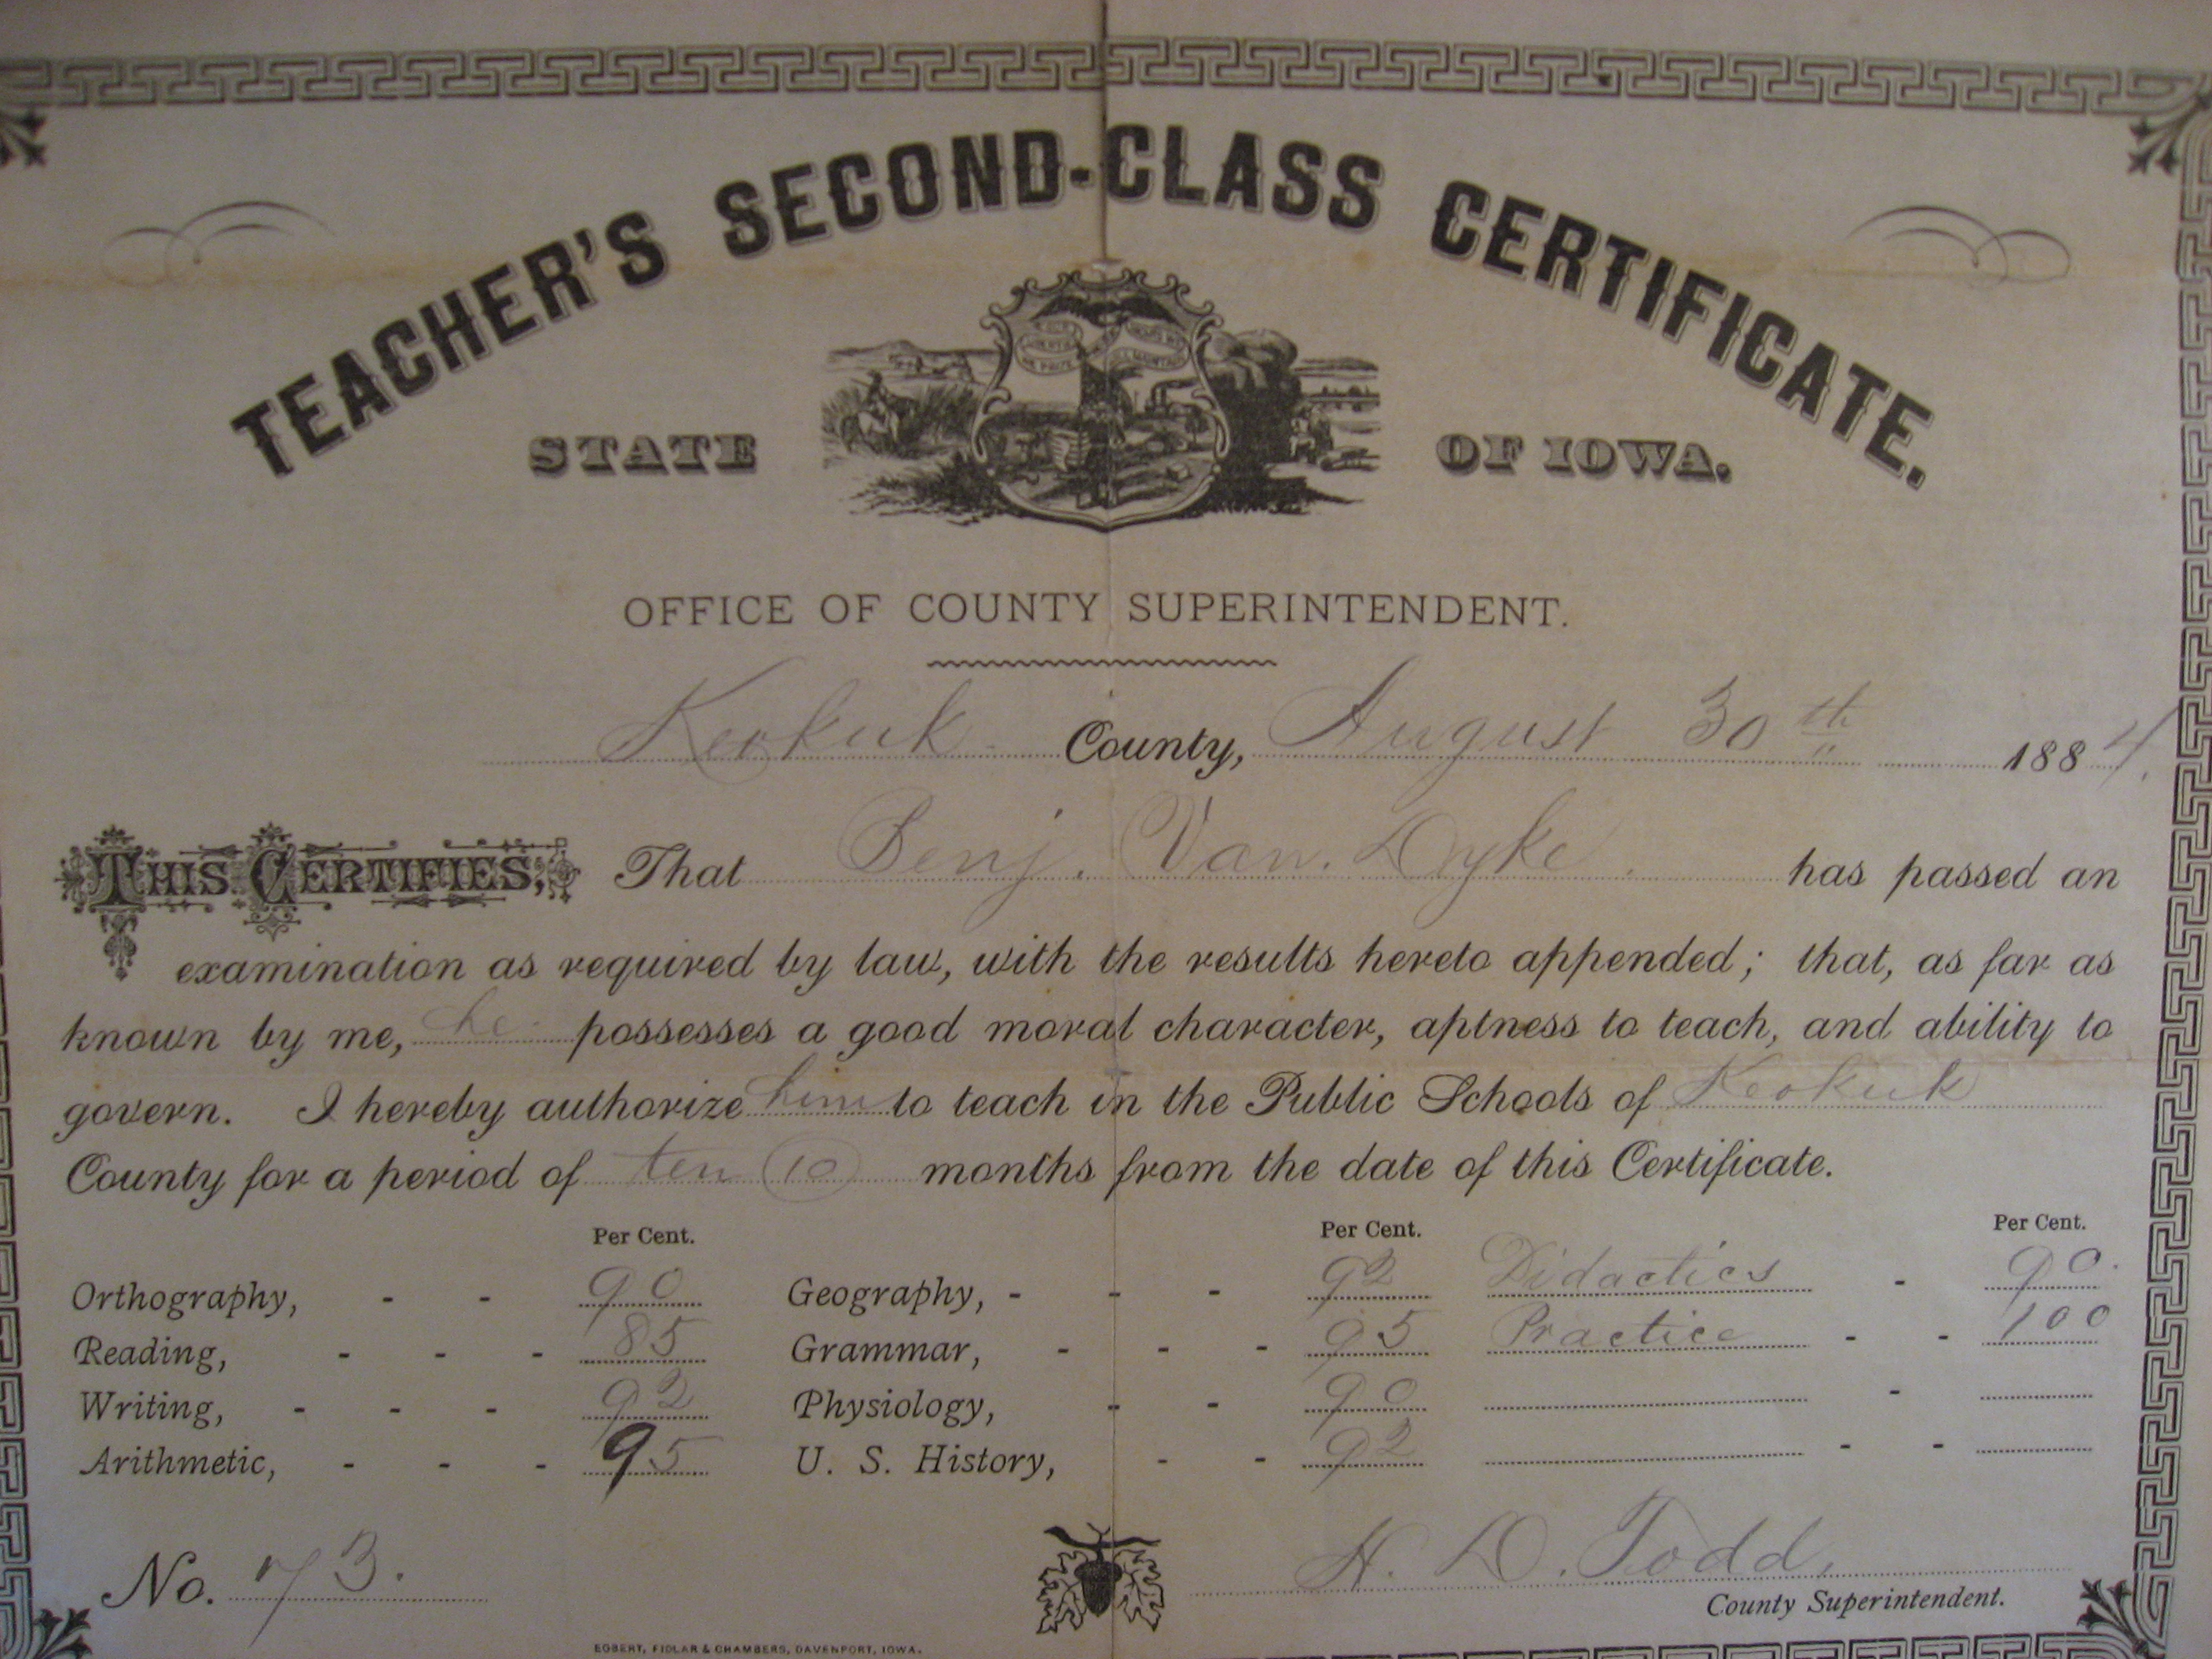 TEACHER'S SECOND-CLASS CERTIFICATE.
STATE OF IOWA.
OFFICE OF COUNTY SUPERINTENDENT.
Keokuk County, August 30th 1884.
THIS CERTIFIES, That Benj. Van. Dyke. has passed an
examination as required by law, with the results hereto appended; that, as far as
known by me, he possesses a good moral character, aptness to teach, and ability to
govern. I hereby authorize him to teach in the Public Schools of Keokuk
County for a period of ten (10) months from the date of this Certificate.
Per Cent. Per Cent. Per Cent.
Orthography, - - 90 Geography, - - - 92 Didactics - 90.
Reading, - - - 85 Grammar, - - - 95 Practice - - 100
Writing, - - - 92 Physiology, - - 90 -
Arithmetic, - - - 95 U. S. History, - - 92 - -
No. 73. H. D. Todd,
County Superintendent.
EGBERT, FIDLAR & CHAMBERS, DAVENPORT, IOWA.